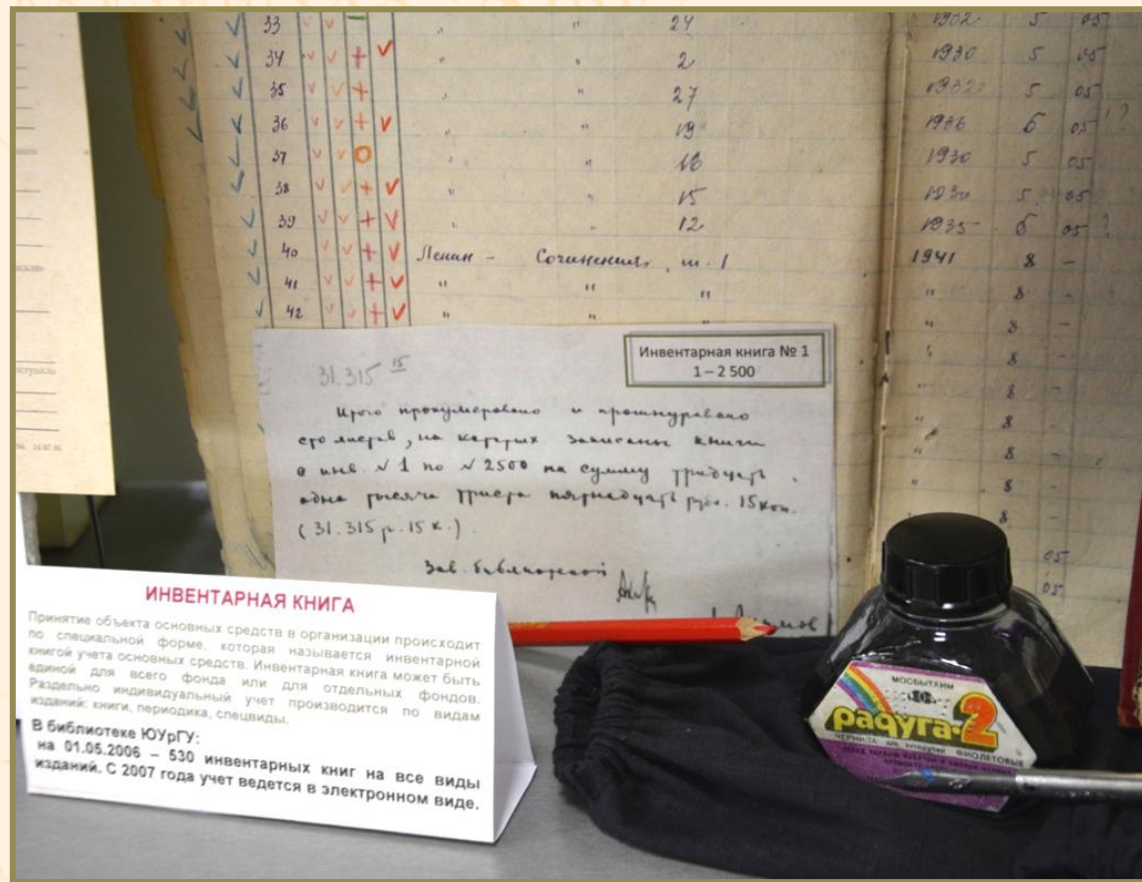 33 " " 24 1932 5 05
34 " " 2 1930 5 05
35 " " 27 1932 5 05
36 " " 19 1936 6 05 ?
37 " " 18 1930 5 05
38 " " 15 1930 5 05
39 " " 12 1935 6 05 ?
40 Ленин - Сочинения, т. 1 1941 8 -
41 " " " " 8 -
42 " " " 8 -
" 8 -
" 8 -
" 8 -
" 8 -
" 8 -
" 8 -
05
05
Инвентарная книга № 1
1 – 2 500
31.315 15
Итого пронумеровано и прошнуровано
сто листов, на которых записаны книги
с инв. № 1 по № 2500 на сумму тридцать
одна тысяча триста пятнадцать руб. 15 коп.
(31.315 р. 15 к.).
Зав. библиотекой
ИНВЕНТАРНАЯ КНИГА
Принятие объекта основных средств в организации происходит
по специальной форме, которая называется инвентарной
книгой учета основных средств. Инвентарная книга может быть
единой для всего фонда или для отдельных фондов.
Раздельно индивидуальный учет производится по видам
изданий: книги, периодика, спецвиды.
В библиотеке ЮУрГУ:
на 01.05.2006 – 530 инвентарных книг на все виды
изданий. С 2007 года учет ведется в электронном виде.
МОСБЫТХИМ
радуга-2
ЧЕРНИЛА для авторучек ФИОЛЕТОВЫЕ